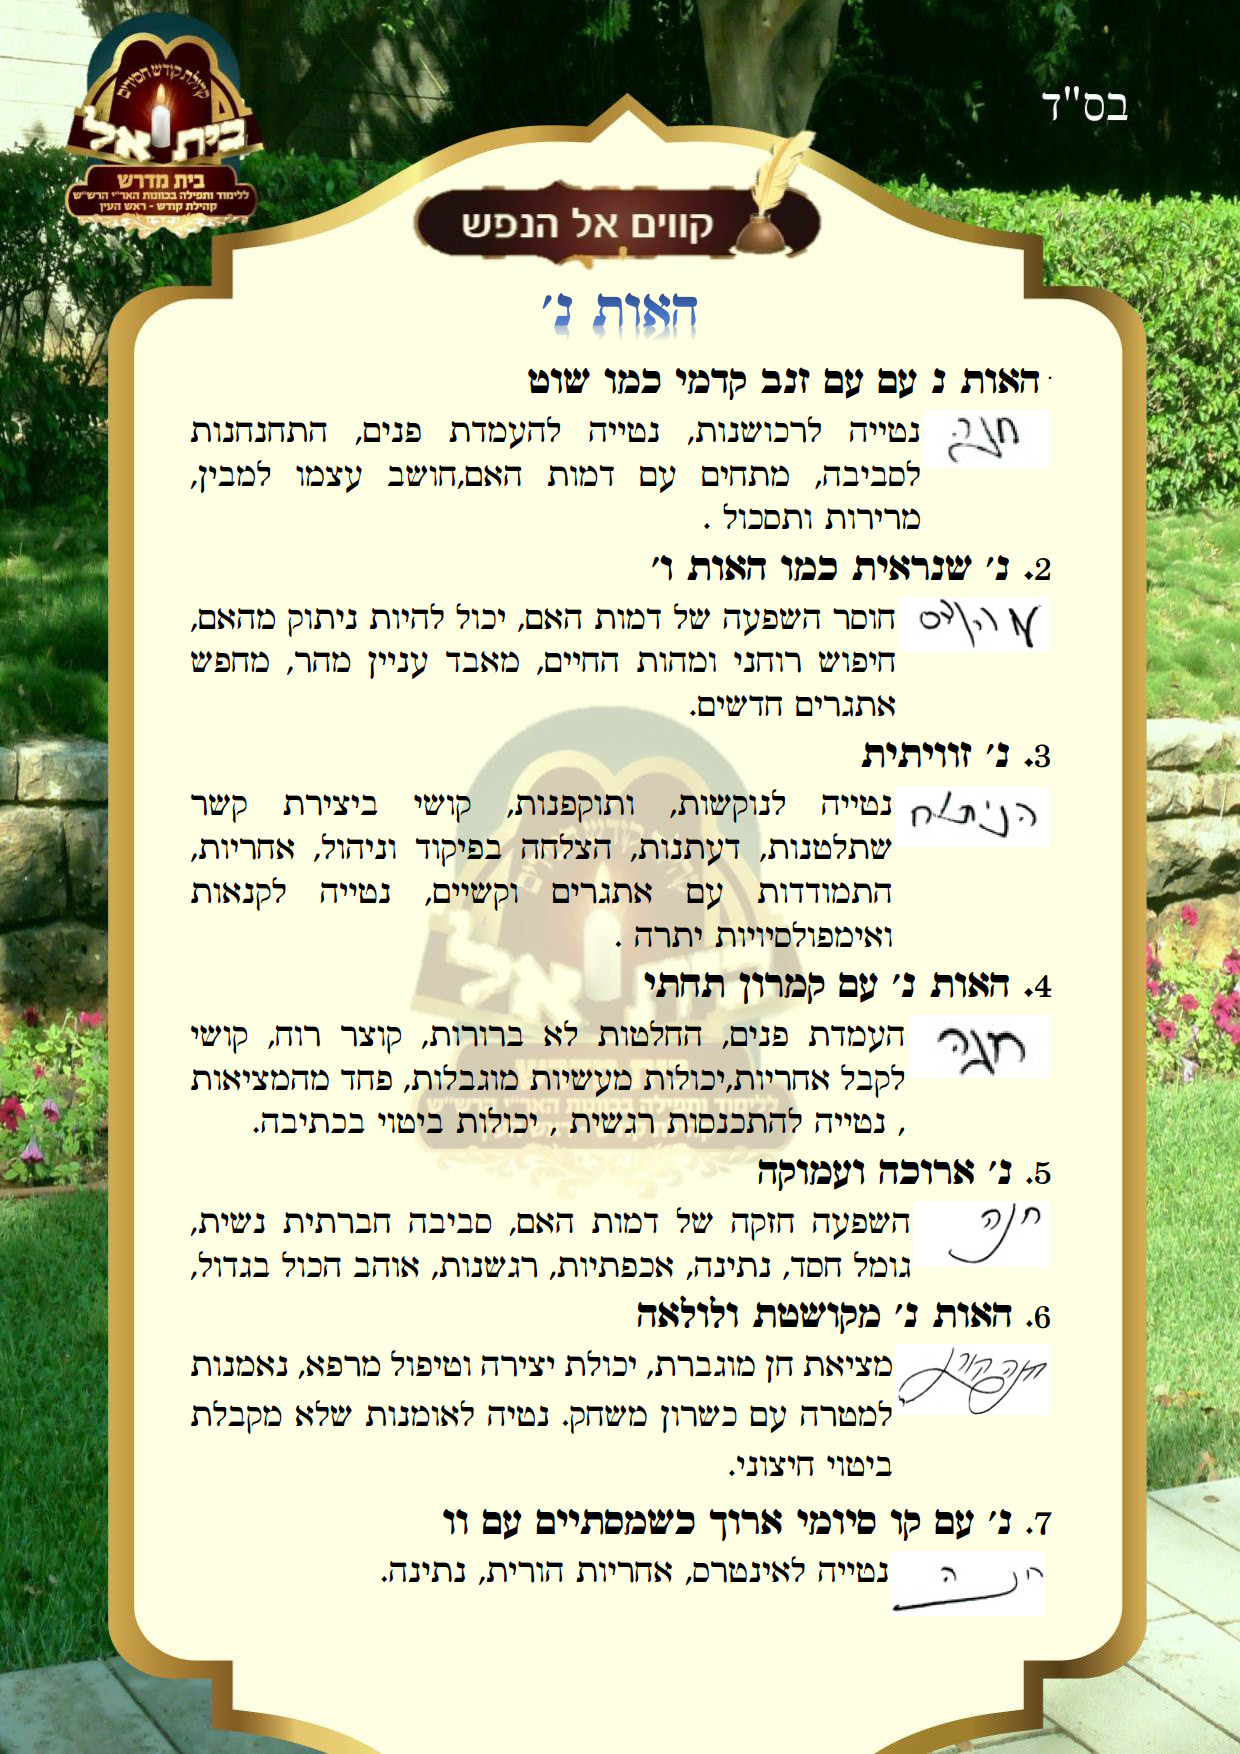 בס"ד
קהילת קודש חסידים
בית אל
בית מדרש
ללימוד ותפילה בכוונות האר"י הרש"ש
קהילת קודש - ראש העין
קווים אל הנפש
האות נ'
האות נ עם עם זנב קדמי כמו שוט
חנה
נטייה לרכושנות, נטייה להעמדת פנים, התחנחנות
לסביבה, מתחים עם דמות האם,חושב עצמו למבין,
מרירות ותסכול .
2. נ' שנראית כמו האות ו'
חוסר השפעה של דמות האם, יכול להיות ניתוק מהאם,
חיפוש רוחני ומהות החיים, מאבד עניין מהר, מחפש
אתגרים חדשים.
3. נ' זוויתית
הניתוח
נטייה לנוקשות, ותוקפנות, קושי ביצירת קשר
שתלטנות, דעתנות, הצלחה בפיקוד וניהול, אחריות,
התמודדות עם אתגרים וקשיים, נטייה לקנאות
ואימפולסיויות יתרה .
4. האות נ' עם קמרון תחתי
חנה
העמדת פנים, החלטות לא ברורות, קוצר רוח, קושי
לקבל אחריות,יכולות מעשיות מוגבלות, פחד מהמציאות
, נטייה להתכנסות רגשית , יכולות ביטוי בכתיבה.
5. נ' ארוכה ועמוקה
חנה
השפעה חזקה של דמות האם, סביבה חברתית נשית,
גומל חסד, נתינה, אכפתיות, רגשנות, אוהב הכול בגדול,
6. האות נ' מקושטת ולולאה
מציאת חן מוגברת, יכולת יצירה וטיפול מרפא, נאמנות
למטרה עם כשרון משחק. נטיה לאומנות שלא מקבלת
ביטוי חיצוני.
7. נ' עם קו סיומי ארוך כשמסתיים עם וו
חנה
נטייה לאינטרס, אחריות הורית, נתינה.